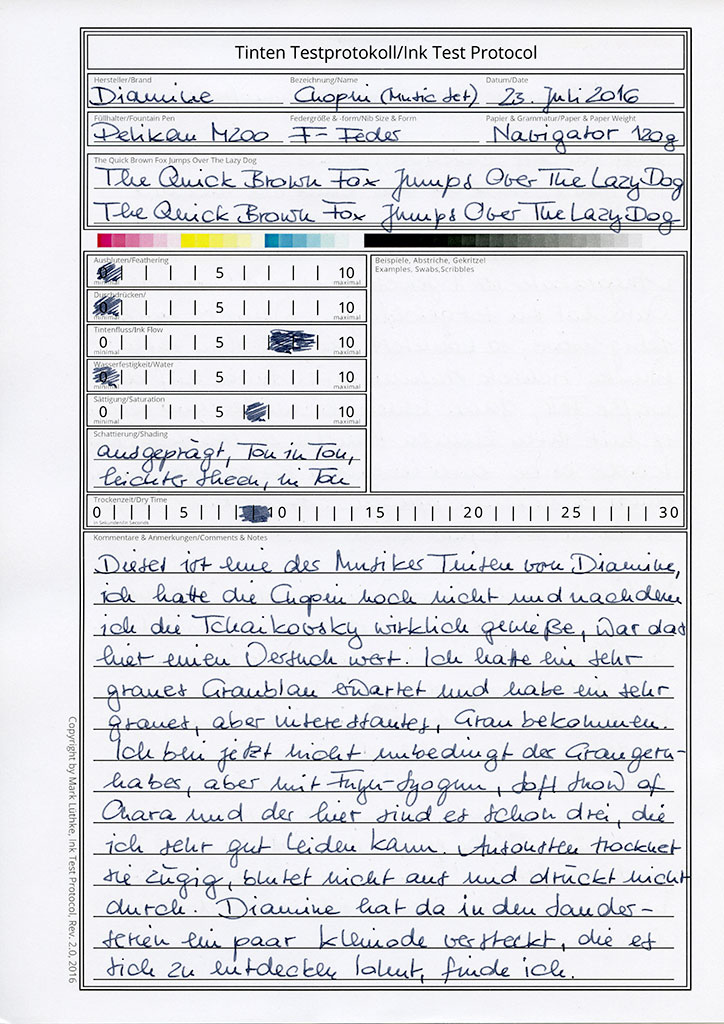 Tinten Testprotokoll/Ink Test Protocol
Hersteller/Brand Bezeichnung/Name Datum/Date
Diamine Chopin (Music Set) 23. Juli 2016
Füllhalter/Fountain Pen Federgröße & -form/Nib Size & Form Papier & Grammatur/Paper & Paper Weight
Pelikan M200 F-Feder Navigator 120g
The Quick Brown Fox Jumps Over The Lazy Dog
The Quick Brown Fox Jumps Over The Lazy Dog
The Quick Brown Fox Jumps Over The Lazy Dog
Ausbluten/Feathering
0 5 10
minimal maximal
Durchdrücken/
0 5 10
minimal maximal
Tintenfluss/Ink Flow
0 5 10
minimal maximal
Wasserfestigkeit/Water
0 5 10
minimal maximal
Sättigung/Saturation
0 5 10
minimal maximal
Schattierung/Shading
ausgeprägt, Ton in Ton,
leichter Sheen, in Ton
Beispiele, Abstriche, Gekritzel
Examples, Swabs,Scribbles
Trockenzeit/Dry Time
0 5 10 15 20 25 30
in Sekunden/in Seconds
Kommentare & Anmerkungen/Comments & Notes
Dieses ist eine der Musiker Tinten von Diamine,
ich hatte die Chopin noch nicht und nachdem
ich die Tchaikovsky wirklich genieße, war das
hier einen Versuch wert. Ich hatte ein sehr
graues Graublau erwartet und habe ein sehr
graues, aber interessantes, Grau bekommen.
Ich bin jetzt nicht unbedingt der Graugern-
haber, aber mit Fuyu-Syogun, Soft Snow of
Ohara und der hier sind es schon drei, die
ich sehr gut leiden kann. Ansonsten trocknet
sie zügig, blutet nicht aus und drückt nicht
durch. Diamine hat da in den Sonder-
serien ein paar Kleinode versteckt, die es
sich zu entdecken lohnt, finde ich.
Copyright by Mark Luthke, Ink Test Protocol, Rev. 2.0, 2016